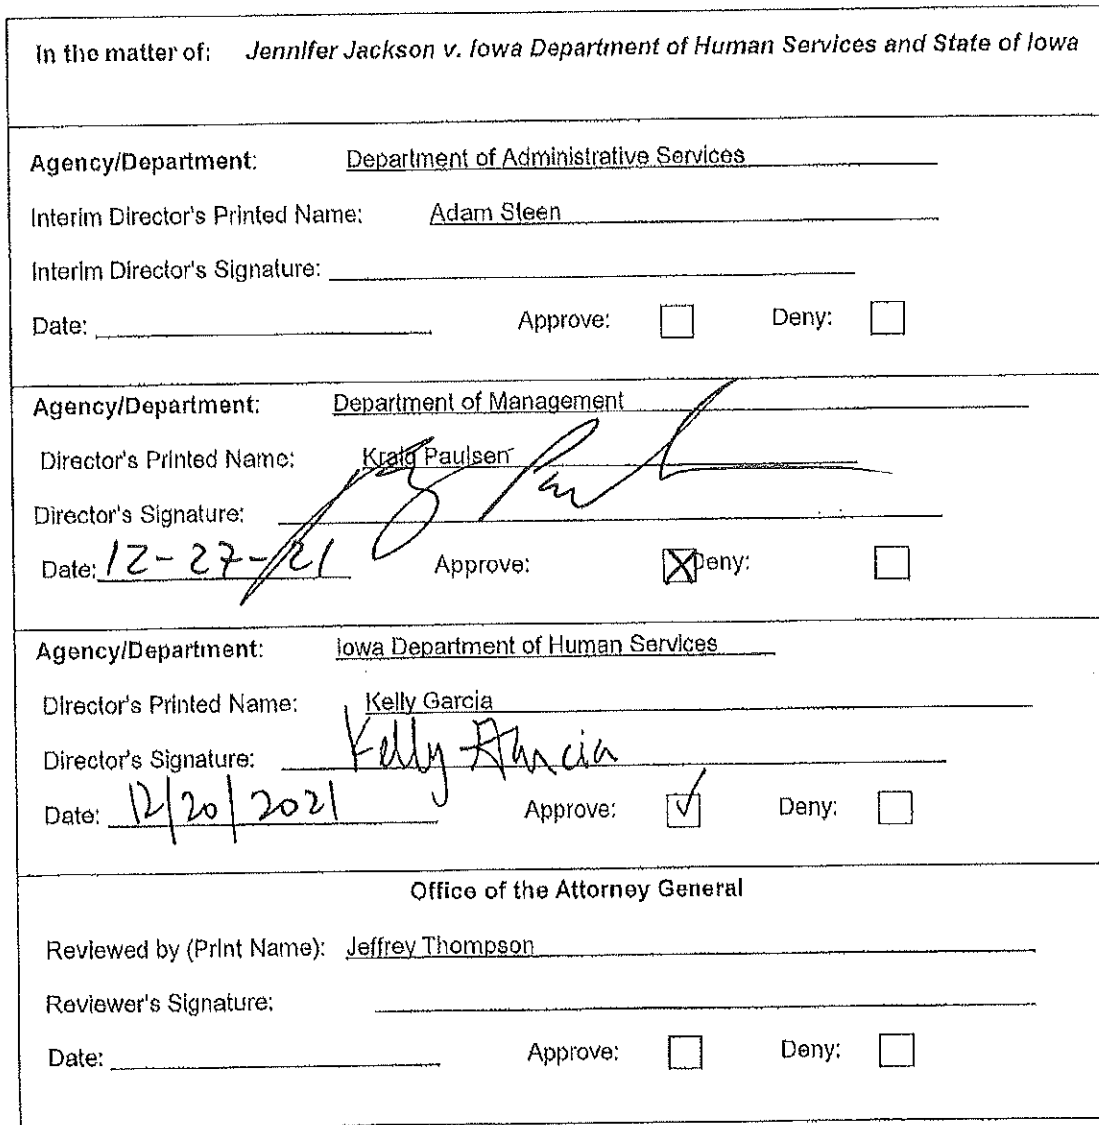 In the matter of: Jennifer Jackson v. Iowa Department of Human Services and State of Iowa
Agency/Department: Department of Administrative Services
Interim Director's Printed Name: Adam Steen
Interim Director's Signature:
Date: Approve: Deny:
Agency/Department: Department of Management
Director's Printed Name: Kraig Paulsen
Director's Signature:
Date: 12-27-21 Approve: X Deny:
Agency/Department: Iowa Department of Human Services
Director's Printed Name: Kelly Garcia
Director's Signature: Kelly Garcia
Date: 12/20/2021 Approve: ✓ Deny:
Office of the Attorney General
Reviewed by (Print Name): Jeffrey Thompson
Reviewer's Signature:
Date: Approve: Deny: